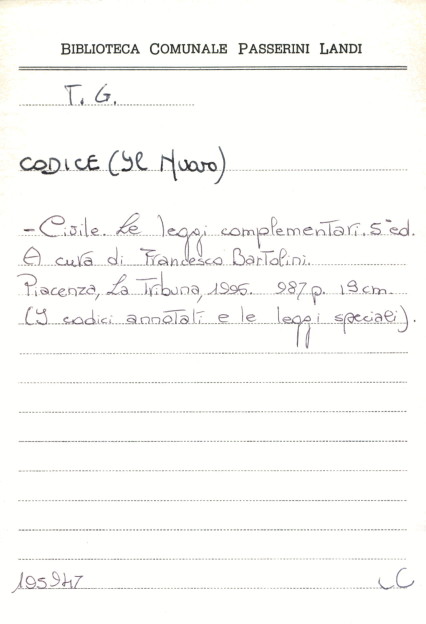 BIBLIOTECA COMUNALE PASSERINI LANDI
T. G.
CODICE (Il Nuovo)
- Civile. Le leggi complementari. 5ª ed.
A cura di Francesco Bartolini.
Piacenza, La Tribuna, 1995. 987 p. 19 cm.
(I codici annotati e le leggi speciali).
195947